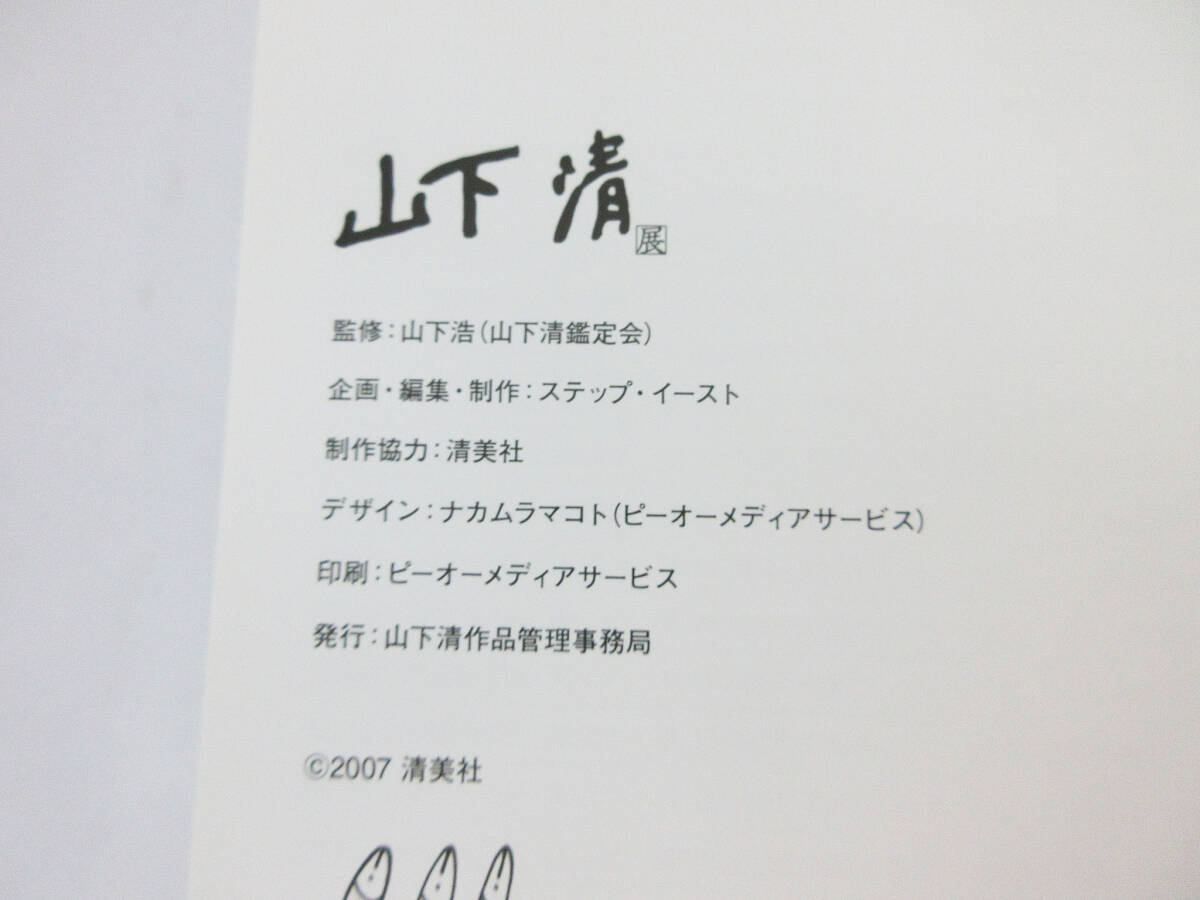 山下清展
監修：山下浩（山下清鑑定会）
企画・編集・制作：ステップ・イースト
制作協力：清美社
デザイン：ナカムラマコト（ピーオーメディアサービス）
印刷：ピーオーメディアサービス
発行：山下清作品管理事務局
©2007 清美社